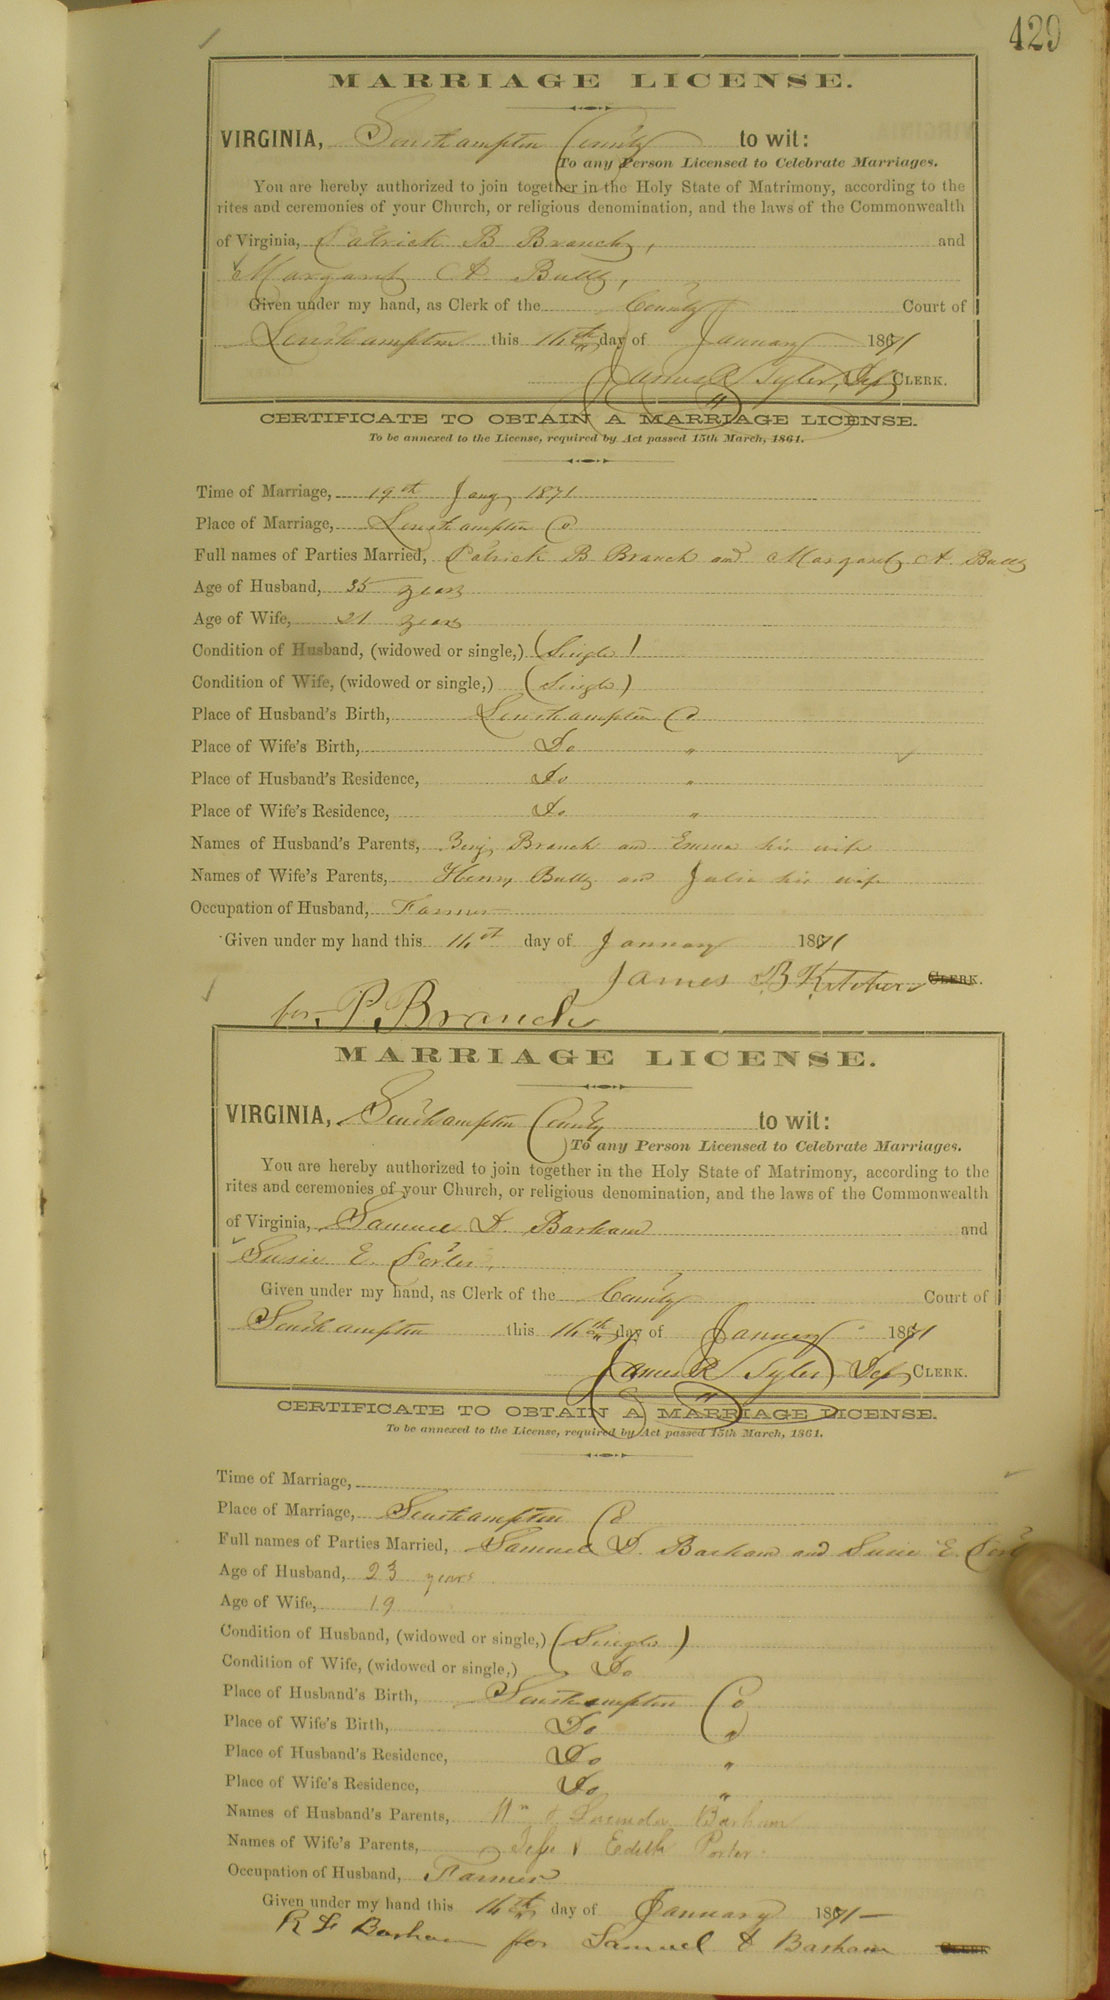 429
MARRIAGE LICENSE.
VIRGINIA, Southampton County to wit:
To any Person Licensed to Celebrate Marriages.
You are hereby authorized to join together in the Holy State of Matrimony, according to the
rites and ceremonies of your Church, or religious denomination, and the laws of the Commonwealth
of Virginia, Patrick B Branch, and
Margaret A
Given under my hand, as Clerk of the County Court of
Southampton this day of January 1871
James R Tyler, Dep CLERK.
CERTIFICATE TO OBTAIN A MARRIAGE LICENSE.
To be annexed to the License, required by Act passed 15th March, 1861.
Time of Marriage, 19th Jany 1871
Place of Marriage, Southampton Co
Full names of Parties Married, Patrick B Branch and Margaret A.
Age of Husband, 35 years
Age of Wife, 21 years
Condition of Husband, (widowed or single,) (Single)
Condition of Wife, (widowed or single,) (Single)
Place of Husband's Birth, Southampton Co
Place of Wife's Birth, Do "
Place of Husband's Residence, Do "
Place of Wife's Residence, Do "
Names of Husband's Parents, Benj Branch and Emma his wife
Names of Wife's Parents, Henry and Julia his wife
Occupation of Husband, Farmer
Given under my hand this day of January 1871
James B CLERK.
for P. Branch
MARRIAGE LICENSE.
VIRGINIA, Southampton County to wit:
To any Person Licensed to Celebrate Marriages.
You are hereby authorized to join together in the Holy State of Matrimony, according to the
rites and ceremonies of your Church, or religious denomination, and the laws of the Commonwealth
of Virginia, Samuel D. Barham and
Susie E. Porter,
Given under my hand, as Clerk of the County Court of
Southampton this day of January 1871
James R Tyler Dep CLERK.
CERTIFICATE TO OBTAIN A MARRIAGE LICENSE.
To be annexed to the License, required by Act passed 15th March, 1861.
Time of Marriage,
Place of Marriage, Southampton Co
Full names of Parties Married, Samuel D. Barham and Susie E.
Age of Husband, 23 years
Age of Wife, 19
Condition of Husband, (widowed or single,) (Single)
Condition of Wife, (widowed or single,) Do
Place of Husband's Birth, Southampton Co
Place of Wife's Birth, Do "
Place of Husband's Residence, Do "
Place of Wife's Residence, Do "
Names of Husband's Parents, Wm & Lucinda Barham
Names of Wife's Parents, Jesse & Edith Porter
Occupation of Husband, Farmer
Given under my hand this day of January 1871
Barham for Samuel Barham CLERK